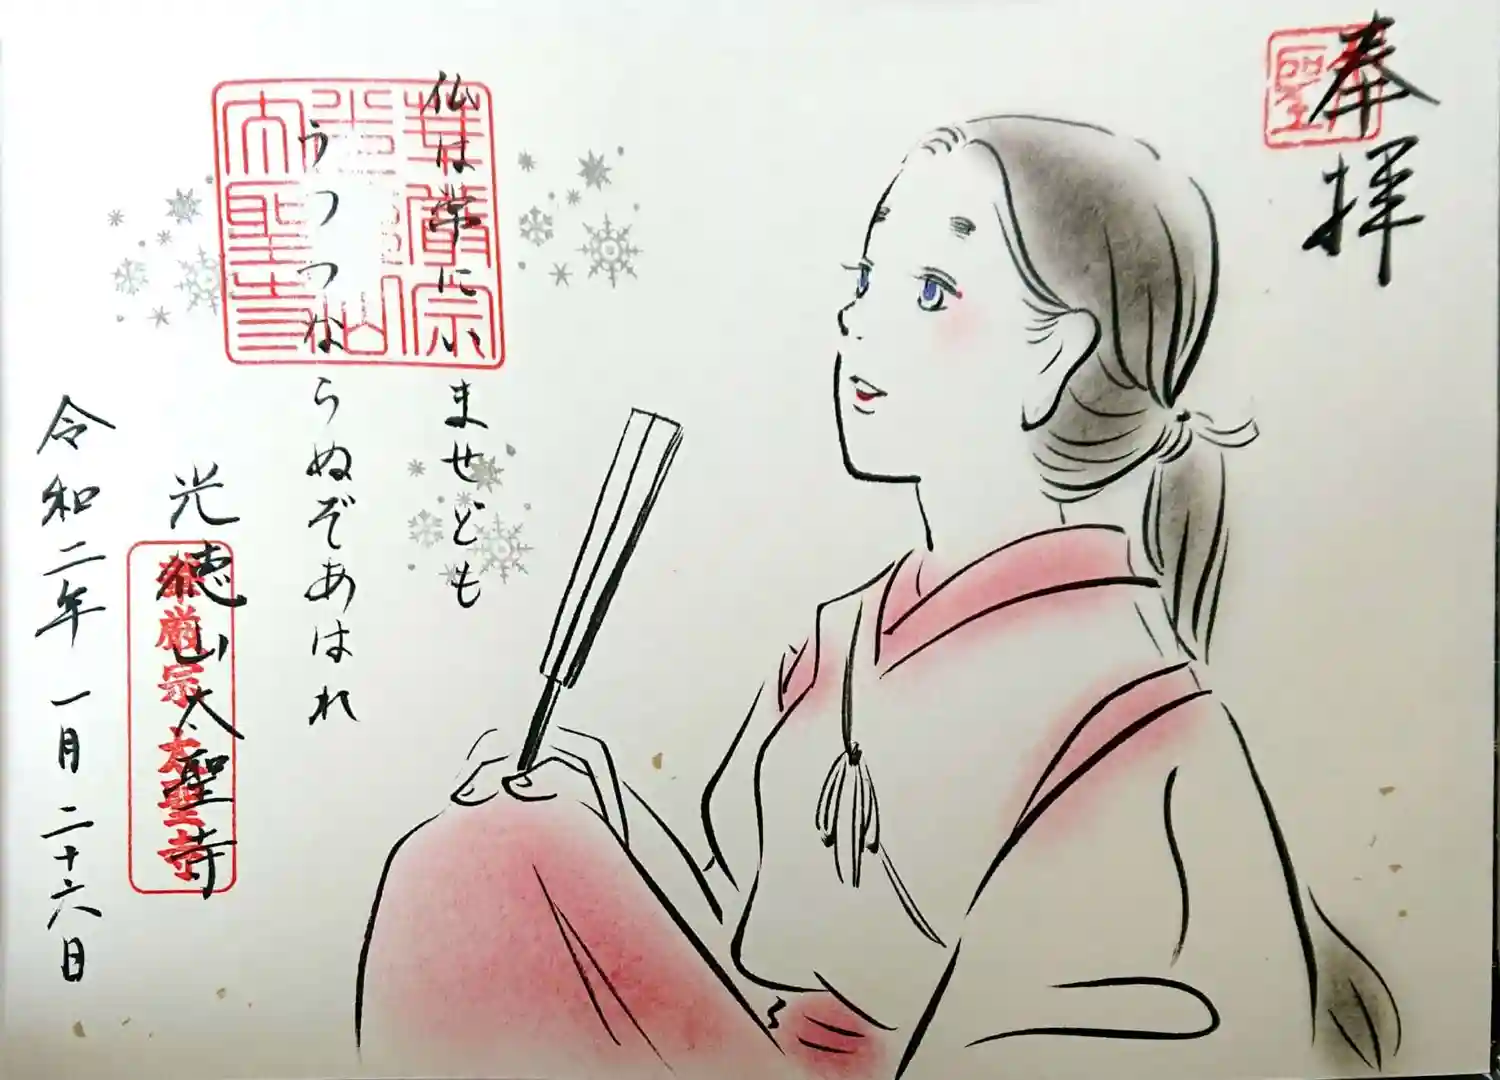 奉拝
仏は常にいませども
うつつならぬぞあはれ
光徳山太聖寺
華厳宗太聖寺
令和二年一月二十六日